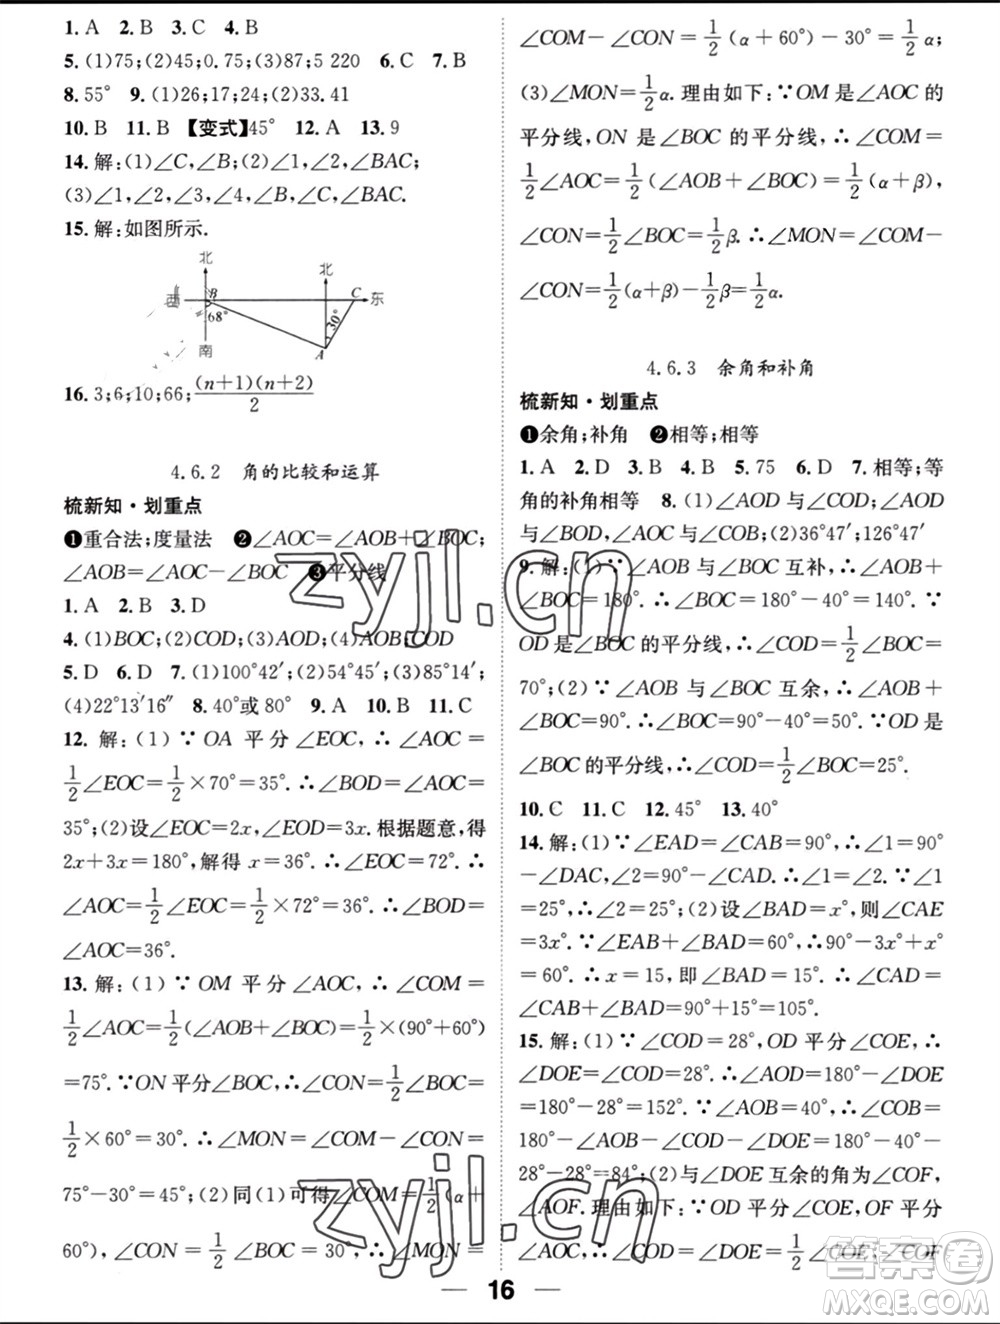 1. A 2. B 3. C 4. B
5. (1)75;(2)45;0.75;(3)87;5 220 6. C 7. B
8. 55° 9. (1)26;17;24;(2)33.41
10. B 11. B 【变式】45° 12. A 13. 9
14. 解:(1)∠C,∠B;(2)∠1,∠2,∠BAC;
(3)∠1,∠2,∠3,∠4,∠B,∠BAC.
15. 解:如图所示.
北
北
西 B C 东
68° 30°
南 A
16. 3;6;10;66;(n+1)(n+2)/2
4.6.2 角的比较和运算
梳新知·划重点
❶重合法;度量法 ❷∠AOC=∠AOB+∠BOC;
∠AOB=∠AOC-∠BOC ❸平分线
1. A 2. B 3. D
4. (1)BOC;(2)COD;(3)AOD;(4)AOB COD
5. D 6. D 7. (1)100°42′;(2)54°45′;(3)85°14′;
(4)22°13′16″ 8. 40°或80° 9. A 10. B 11. C
12. 解:(1)∵OA 平分∠EOC,∴∠AOC=
1/2∠EOC=1/2×70°=35°.∴∠BOD=∠AOC=
35°;(2)设∠EOC=2x,∠EOD=3x.根据题意,得
2x+3x=180°,解得 x=36°.∴∠EOC=72°.∴
∠AOC=1/2∠EOC=1/2×72°=36°.∴∠BOD=
∠AOC=36°.
13. 解:(1)∵OM 平分∠AOC,∴∠COM=
1/2∠AOC=1/2(∠AOB+∠BOC)=1/2×(90°+60°)
=75°.∵ON平分∠BOC,∴∠CON=1/2∠BOC=
1/2×60°=30°.∴∠MON=∠COM-∠CON=
75°-30°=45°;(2)同(1)可得∠COM=1/2(α+
60°),∠CON=1/2∠BOC=30°,∴∠MON=
∠COM-∠CON=1/2(α+60°)-30°=1/2α;
(3)∠MON=1/2α.理由如下:∵OM是∠AOC的
平分线,ON是∠BOC的平分线,∴∠COM=
1/2∠AOC=1/2(∠AOB+∠BOC)=1/2(α+β),
∠CON=1/2∠BOC=1/2β.∴∠MON=∠COM-
∠CON=1/2(α+β)-1/2β=1/2α.
4.6.3 余角和补角
梳新知·划重点
❶余角;补角 ❷相等;相等
1. A 2. D 3. B 4. B 5. 75 6. D 7. 相等;等
角的补角相等 8. (1)∠AOD与∠COD;∠AOD
与∠BOD,∠AOC与∠COB;(2)36°47′;126°47′
9. 解:(1)∵∠AOB与∠BOC互补,∴∠AOB+
∠BOC=180°.∴∠BOC=180°-40°=140°.∵
OD是∠BOC的平分线,∴∠COD=1/2∠BOC=
70°;(2)∵∠AOB与∠BOC互余,∴∠AOB+
∠BOC=90°.∴∠BOC=90°-40°=50°.∵OD是
∠BOC的平分线,∴∠COD=1/2∠BOC=25°.
10. C 11. C 12. 45° 13. 40°
14. 解:(1)∵∠EAD=∠CAB=90°,∴∠1=90°
-∠DAC,∠2=90°-∠CAD.∴∠1=∠2.∵∠1
=25°,∴∠2=25°;(2)设∠BAD=x°,则∠CAE
=3x°.∵∠EAB+∠BAD=60°,∴3x°-x°+x°
=60°.∴x=15,即∠BAD=15°.∴∠CAD=
∠CAB+∠BAD=90°+15°=105°.
15. 解:(1)∵∠COD=28°,OD平分∠COE,∴
∠DOE=∠COD=28°.∴∠AOD=180°-∠DOE
=180°-28°=152°.∵∠AOB=40°,∴∠COB=
180°-∠AOB-∠COD-∠DOE=180°-40°-
28°-28°=84°;(2)与∠DOE互余的角为∠COF,
∠AOF.理由如下:∵OD平分∠COE,OF平分
∠AOC,∴∠COD=∠DOE=1/2∠COE,∠COF
16
zyjl.cn
zyjl.cn
答案圈
MXQE.COM